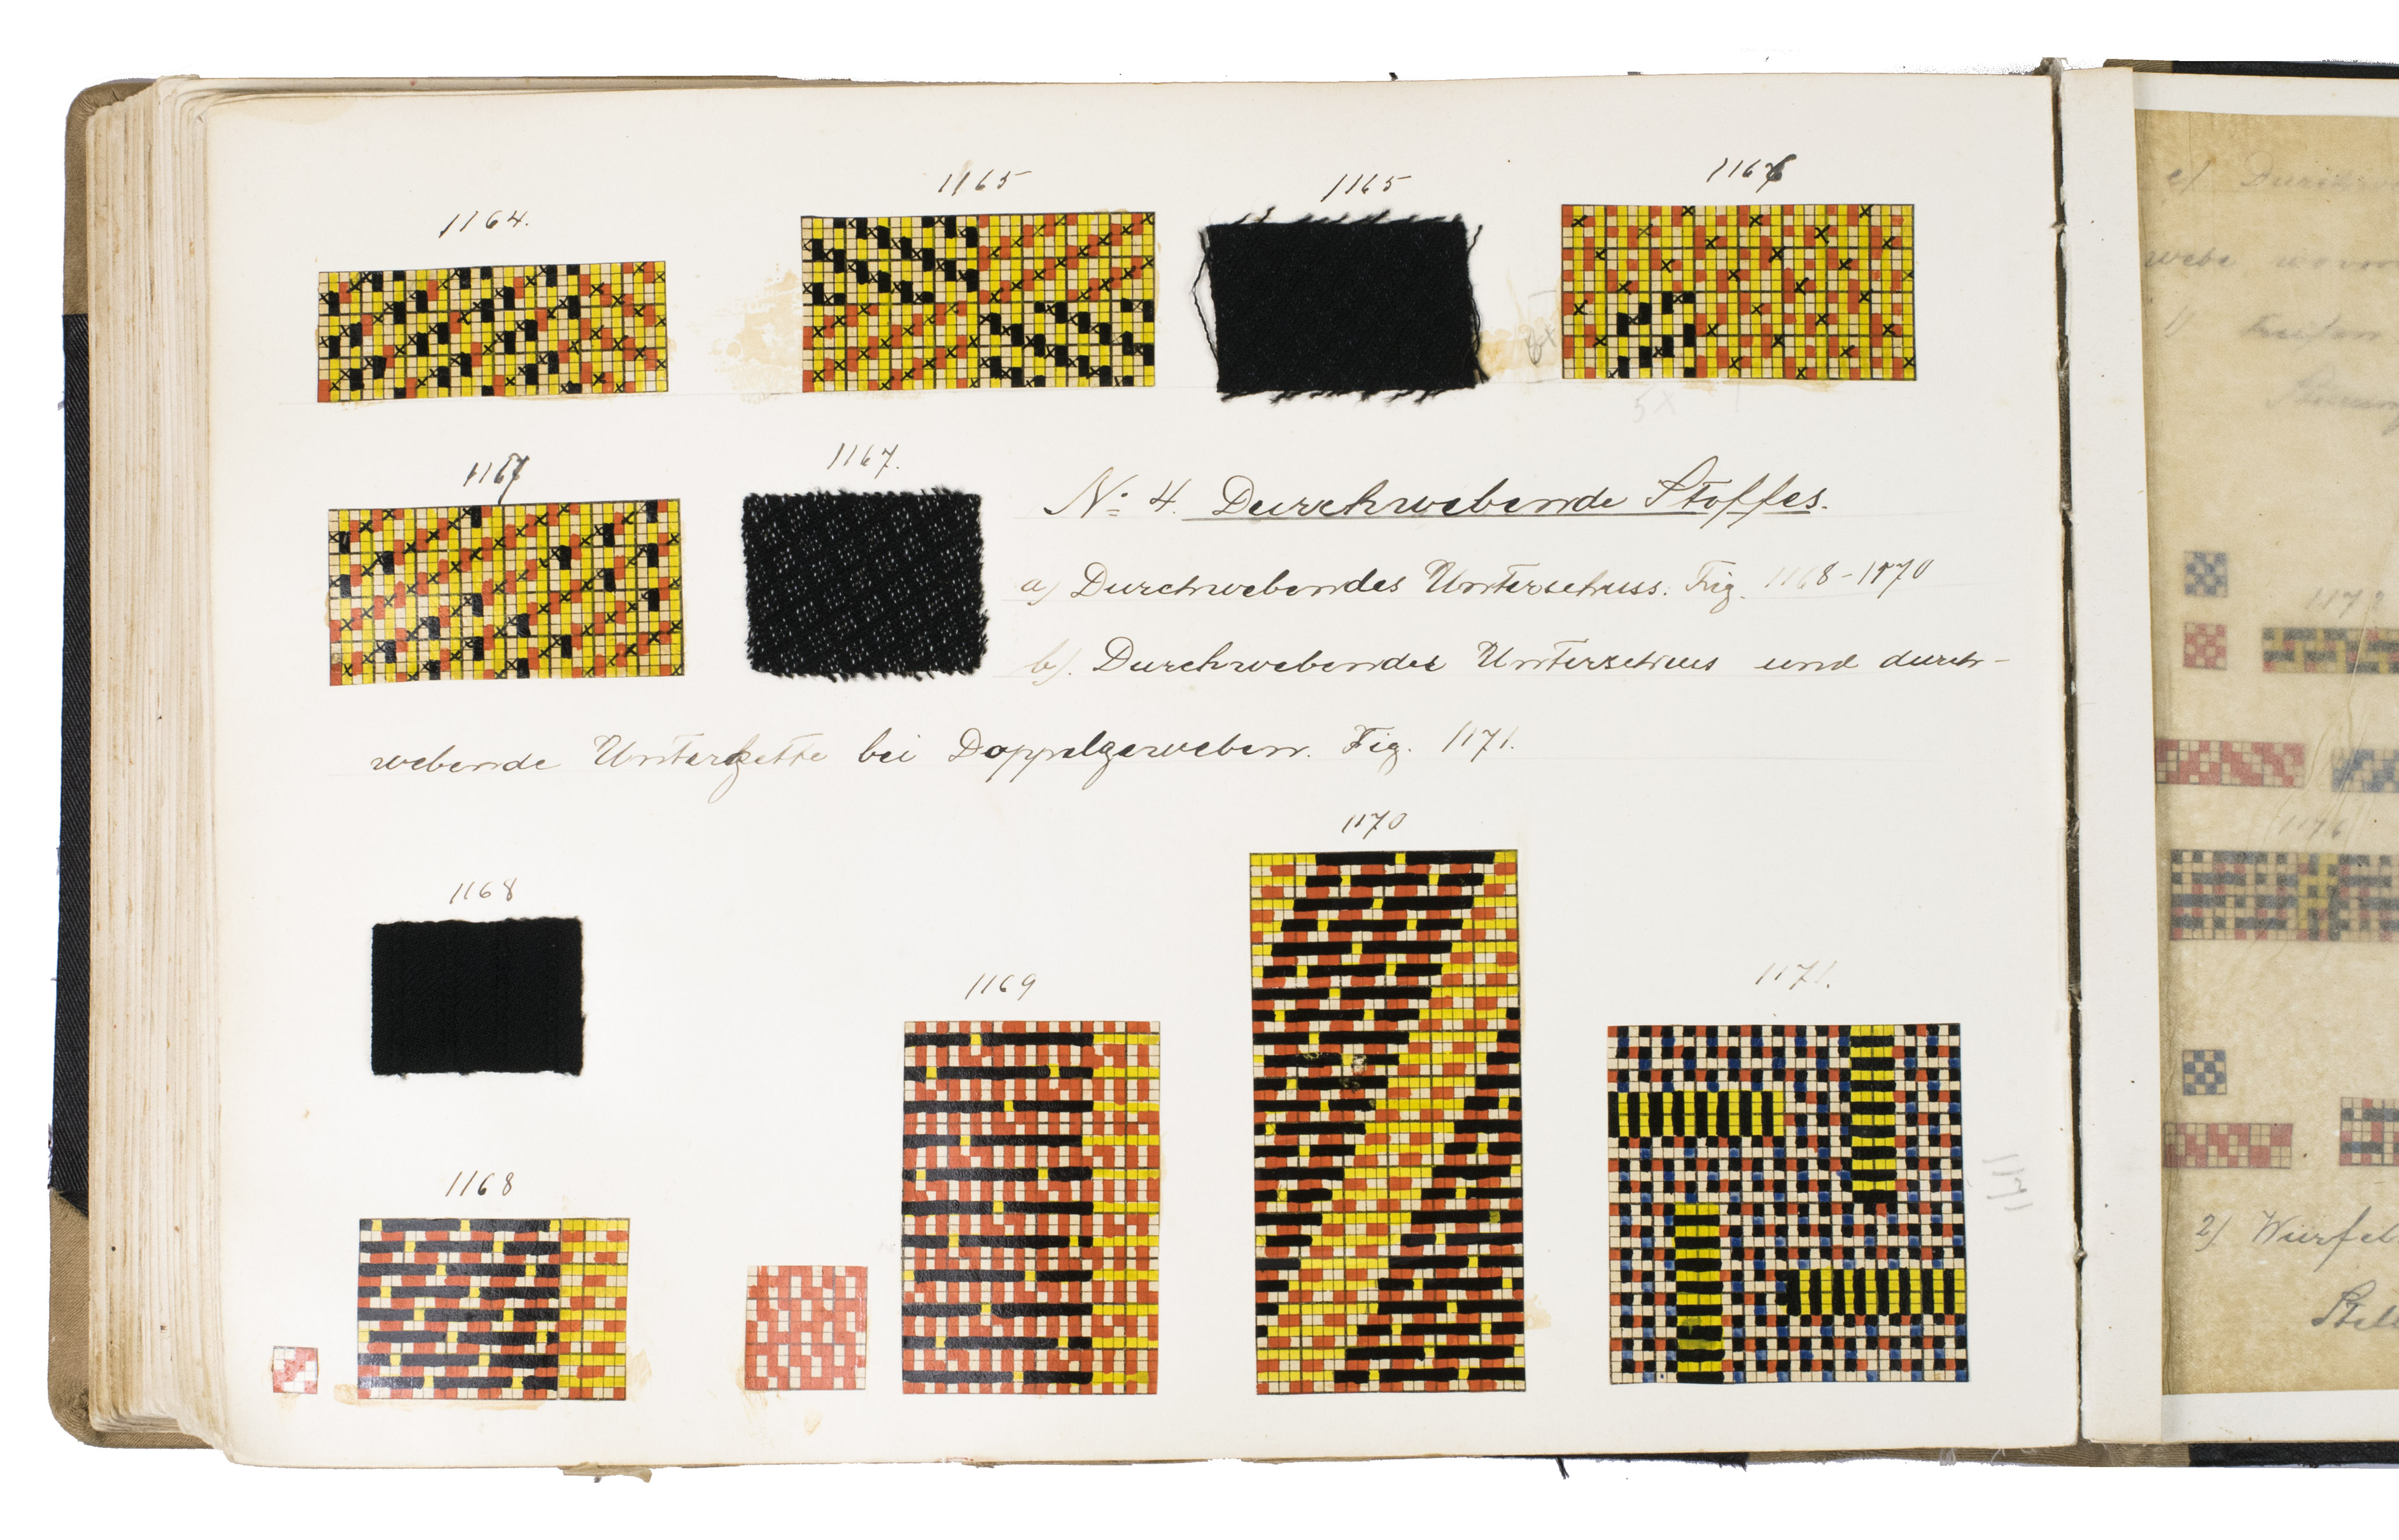 1164.
1165
1165
1166
1167
1167.
No. 4. Durchwebende Stoffes.
a) Durchwebendes Unterschuss. Fig. 1168-1170
b). Durchwebendes Unterschuss und durch-
webende Unterkette bei Doppelgeweben. Fig. 1171.
1168
1168
1169
1170
1171.
1171
5x
2) Würfel